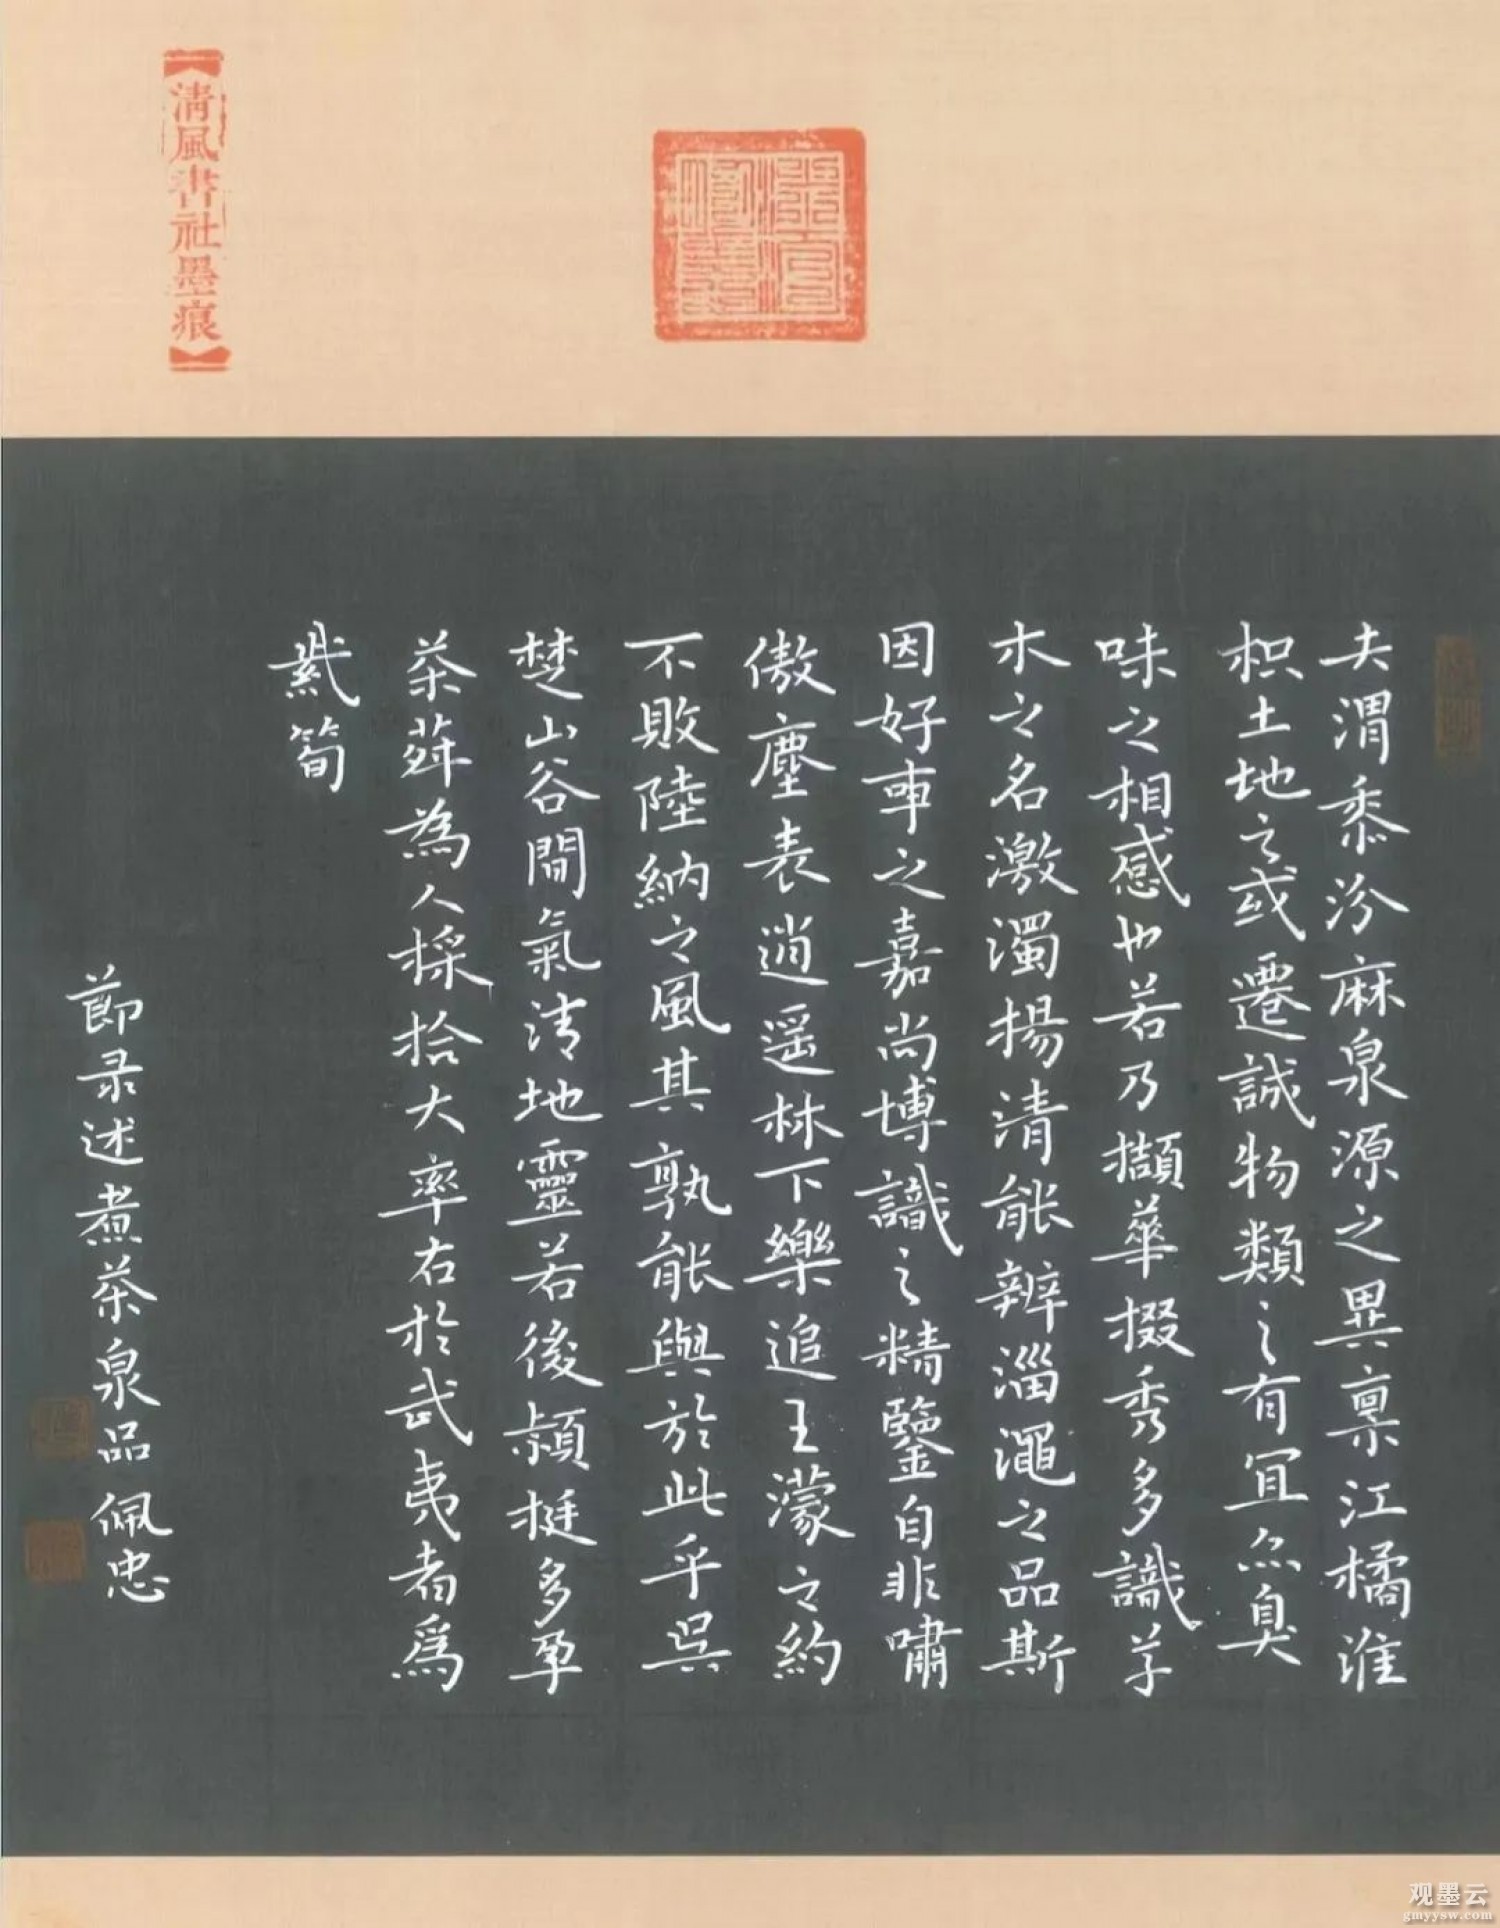 清風書社墨痕
夫渭黍汾麻泉源之異禀江橘淮
枳土地之或遷誠物類之有宜亦臭
味之相感也若乃擷華掇秀多識草
木之名激濁揚清能辨淄澠之品斯
因好事之嘉尚博識之精鑒自非嘯
傲塵表逍遥林下樂追王濛之約
不敗陸納之風其孰能與於此乎吳
楚山谷間氣清地靈若後穎挺多孕
茶荈為人採拾大率右於武夷者為
節录述煮茶泉品佩忠
观墨云
gmyysw.com